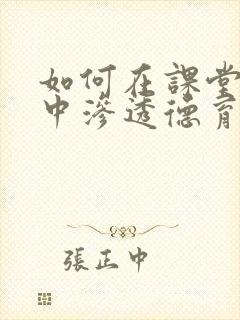 如何在課堂
中滲透德育
張正中